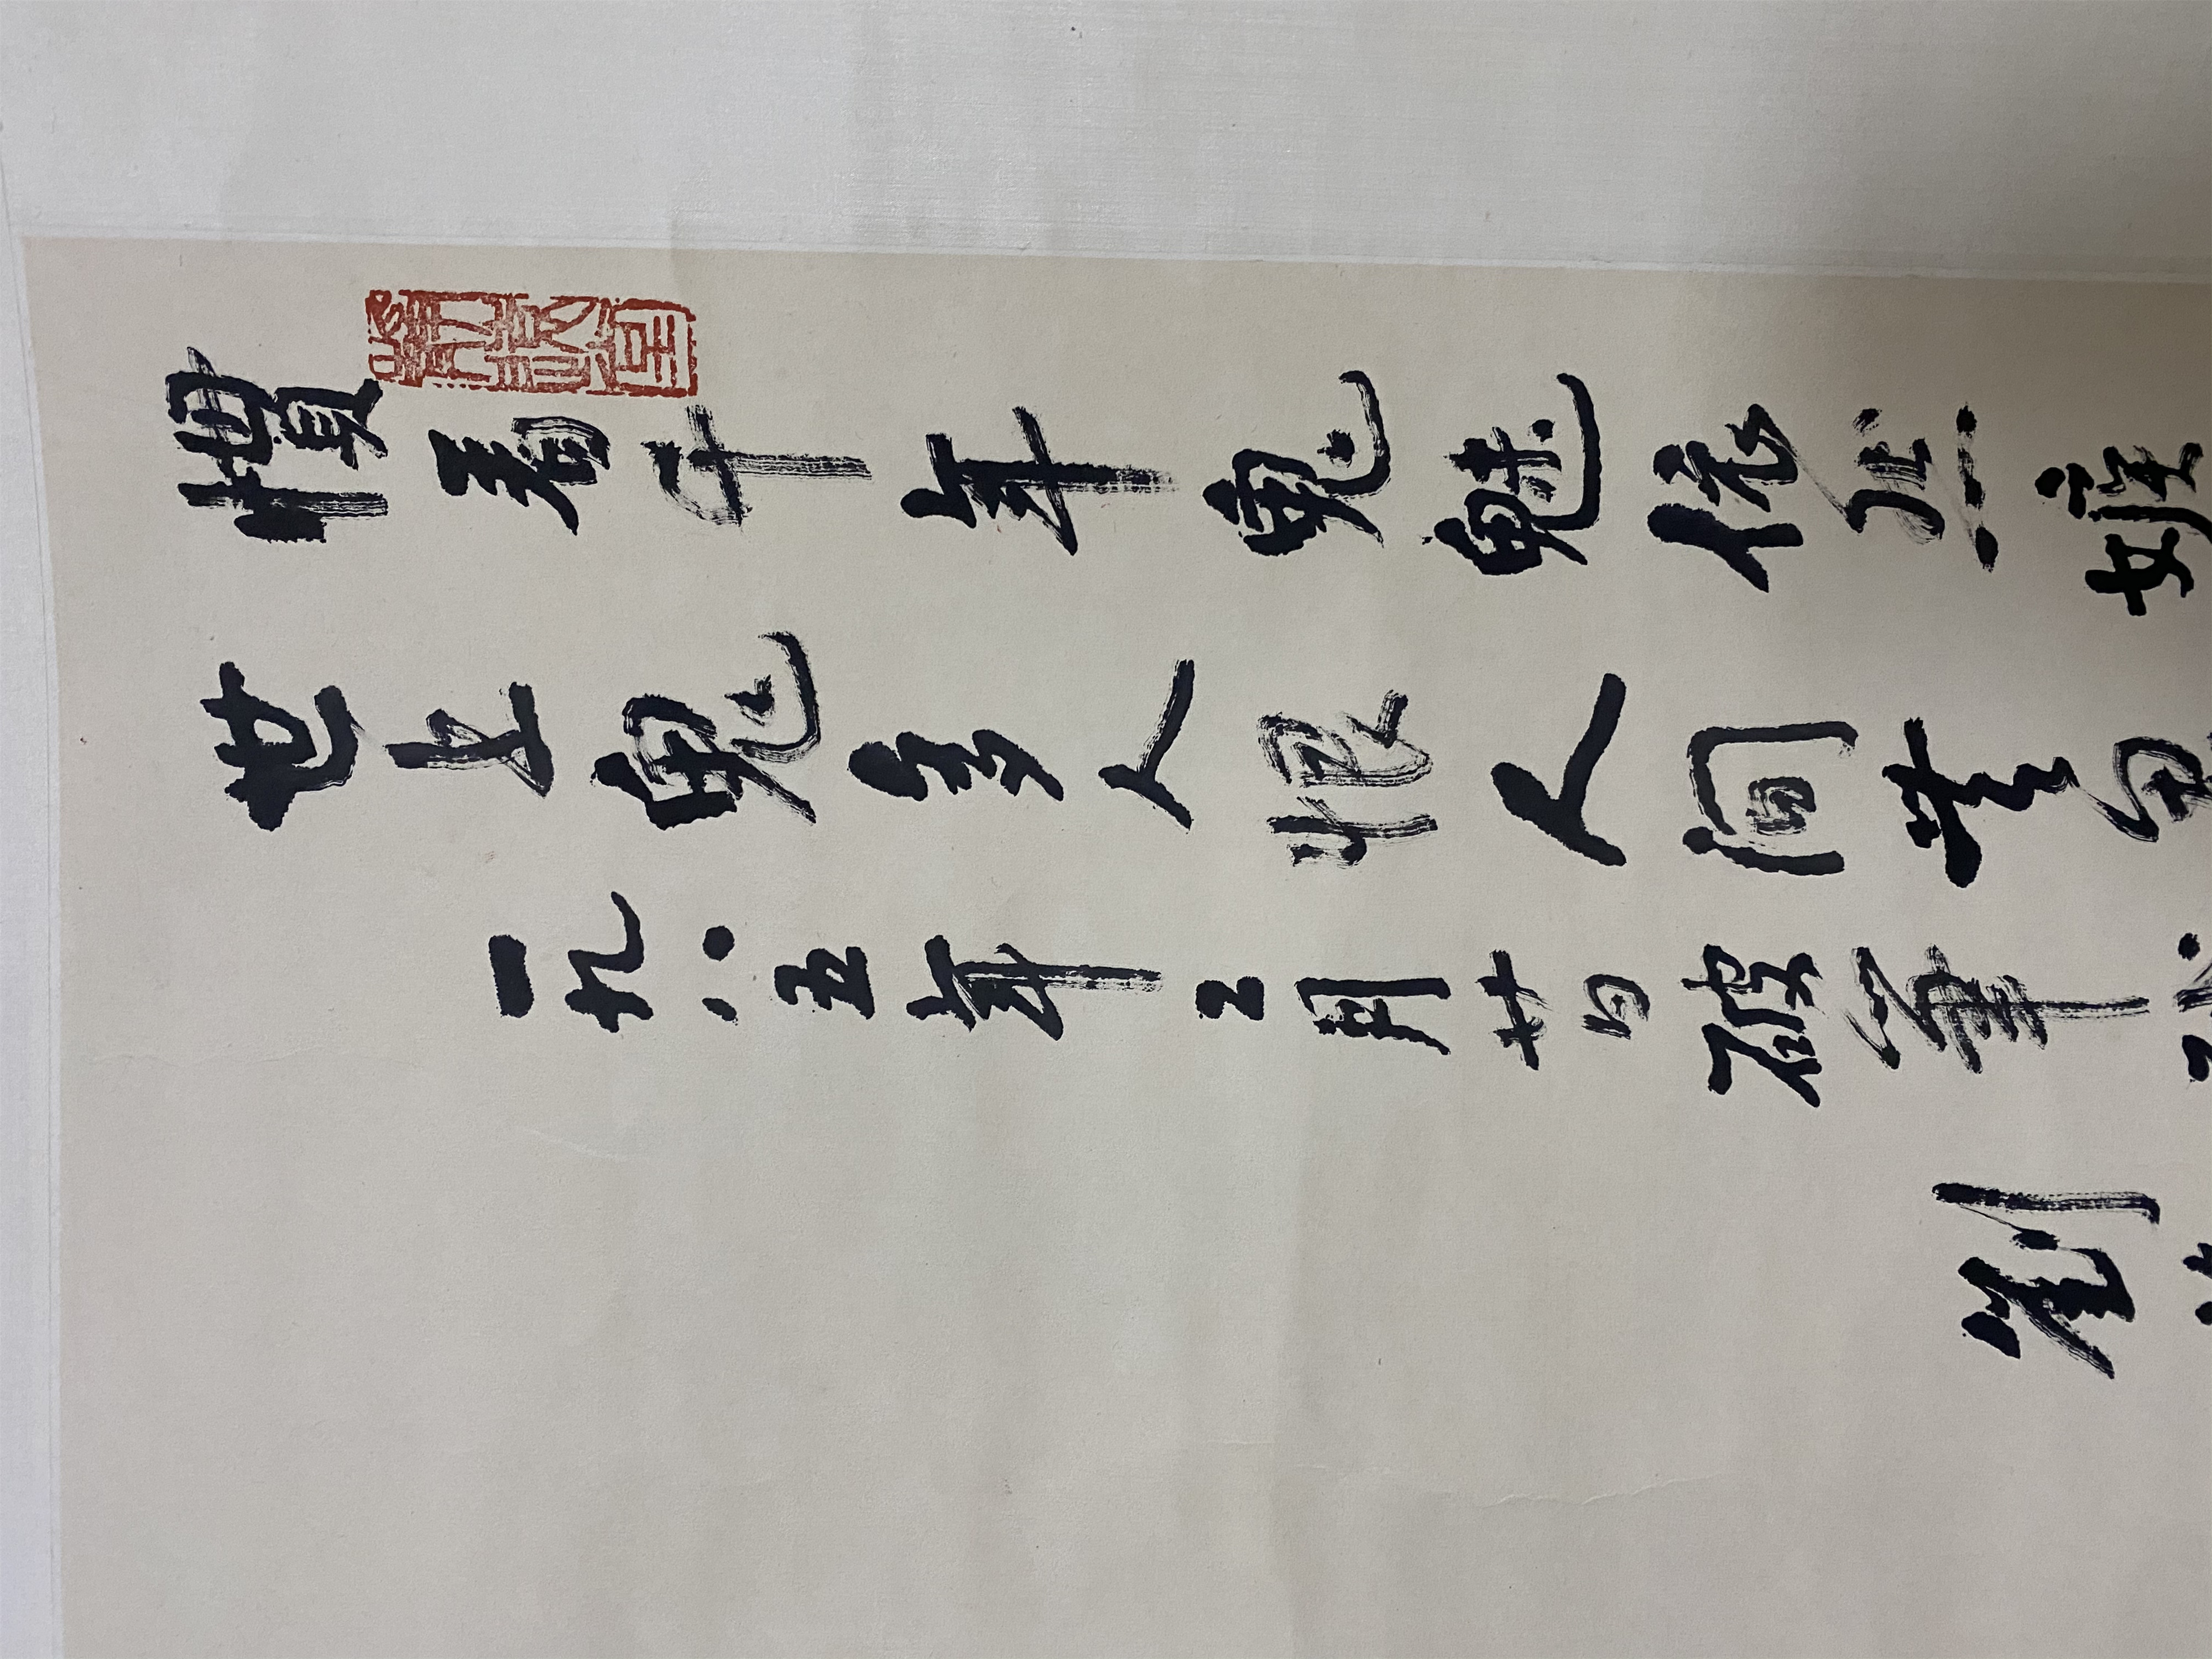 慣看千年鬼魅依然嫉
世上鬼多人恨人間世鬼
一九八五年二月廿日破筆
劉
静遠堂